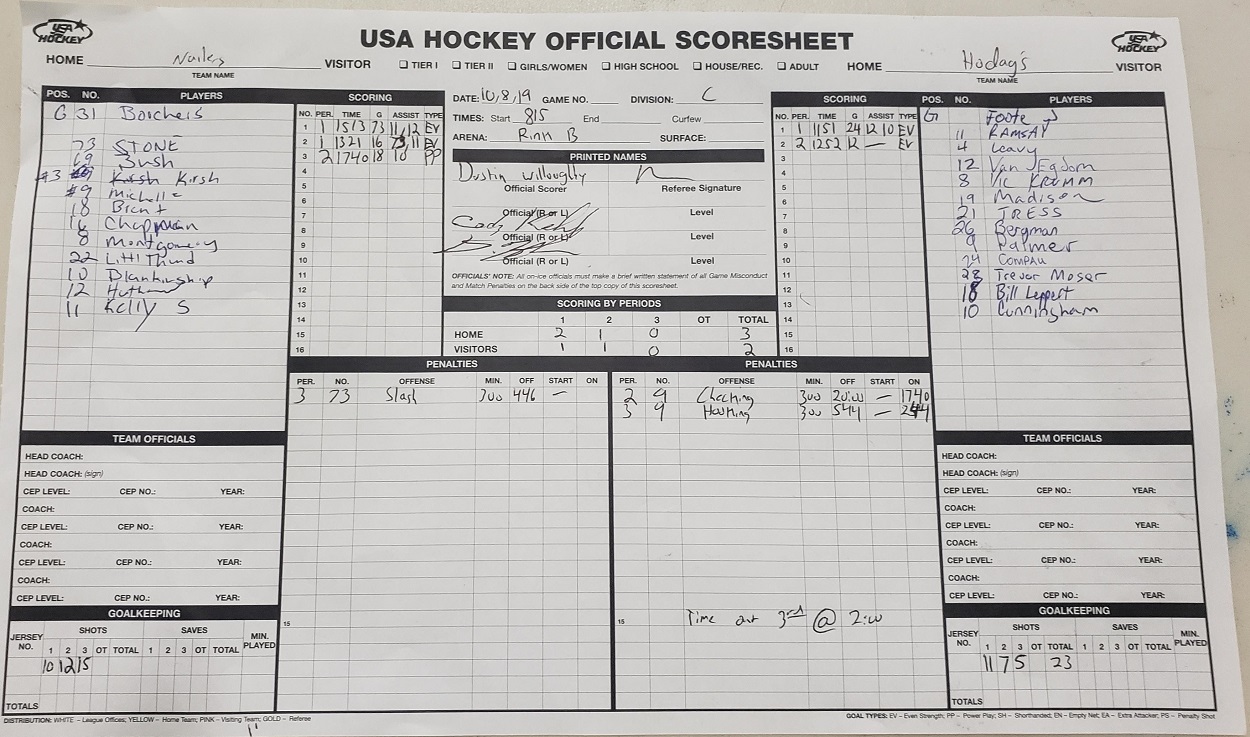 USA HOCKEY
USA HOCKEY OFFICIAL SCORESHEET
USA HOCKEY
HOME Nailers VISITOR
TEAM NAME
☐ TIER I ☐ TIER II ☐ GIRLS/WOMEN ☐ HIGH SCHOOL ☐ HOUSE/REC. ☐ ADULT
HOME Hodag's VISITOR
TEAM NAME
POS. NO. PLAYERS
G 31 Borcheis
73 STONE
69 Bush
#3 Kirsh Kirsh
#9 Michelle
18 Brent
16 Chappman
8 Montgomery
22 Litti Thund
10 Blankinship
12
11 Kelly S
SCORING
NO. PER. TIME G ASSIST TYPE
1 1 1513 73 11/12 EV
2 1 1321 16 73,11 EV
3 2 1740 18 10 PP
4
5
6
7
8
9
10
11
12
13
14
15
16
DATE: 10/8/19 GAME NO. DIVISION: C
TIMES: Start 815 End Curfew
ARENA: Rink B SURFACE:
PRINTED NAMES
Dustin Willoughby
Official Scorer Referee Signature
Official (R or L) Level
Official (R or L) Level
Official (R or L) Level
OFFICIALS' NOTE: All on-ice officials must make a brief written statement of all Game Misconduct
and Match Penalties on the back side of the top copy of this scoresheet.
SCORING BY PERIODS
1 2 3 OT TOTAL
HOME 2 1 0 3
VISITORS 1 1 0 2
SCORING
NO. PER. TIME G ASSIST TYPE
1 1 1151 24 12 10 EV
2 2 1252 12 — EV
3
4
5
6
7
8
9
10
11
12
13
14
15
16
POS. NO. PLAYERS
G Foote J
11 RAMSAY
4 Leavy
12 Van Egdom
8 Vic KRUMM
19 Madison
21 TRESS
26 Bergman
9 Palmer
24 COMPAU
28 Trevor Moser
18 Bill Leppert
10 Cunningham
PENALTIES
PER. NO. OFFENSE MIN. OFF START ON
3 73 Slash 300 446 —
15
PENALTIES
PER. NO. OFFENSE MIN. OFF START ON
2 9 Checking 300 20:00 — 1740
3 9 Hooking 300 544 — 244
15 Time out 3rd @ 2:00
TEAM OFFICIALS
HEAD COACH:
HEAD COACH: (sign)
CEP LEVEL: CEP NO.: YEAR:
COACH:
CEP LEVEL: CEP NO.: YEAR:
COACH:
CEP LEVEL: CEP NO.: YEAR:
COACH:
CEP LEVEL: CEP NO.: YEAR:
GOALKEEPING
JERSEY NO. SHOTS SAVES MIN. PLAYED
1 2 3 OT TOTAL 1 2 3 OT TOTAL
10 12 15
TOTALS
TEAM OFFICIALS
HEAD COACH:
HEAD COACH: (sign)
CEP LEVEL: CEP NO.: YEAR:
COACH:
CEP LEVEL: CEP NO.: YEAR:
COACH:
CEP LEVEL: CEP NO.: YEAR:
COACH:
CEP LEVEL: CEP NO.: YEAR:
GOALKEEPING
JERSEY NO. SHOTS SAVES MIN. PLAYED
1 2 3 OT TOTAL 1 2 3 OT TOTAL
11 7 5 23
TOTALS
DISTRIBUTION: WHITE – League Offices; YELLOW – Home Team; PINK – Visiting Team; GOLD – Referee
GOAL TYPES: EV – Even Strength; PP – Power Play; SH – Shorthanded; EN – Empty Net; EA – Extra Attacker; PS – Penalty Shot